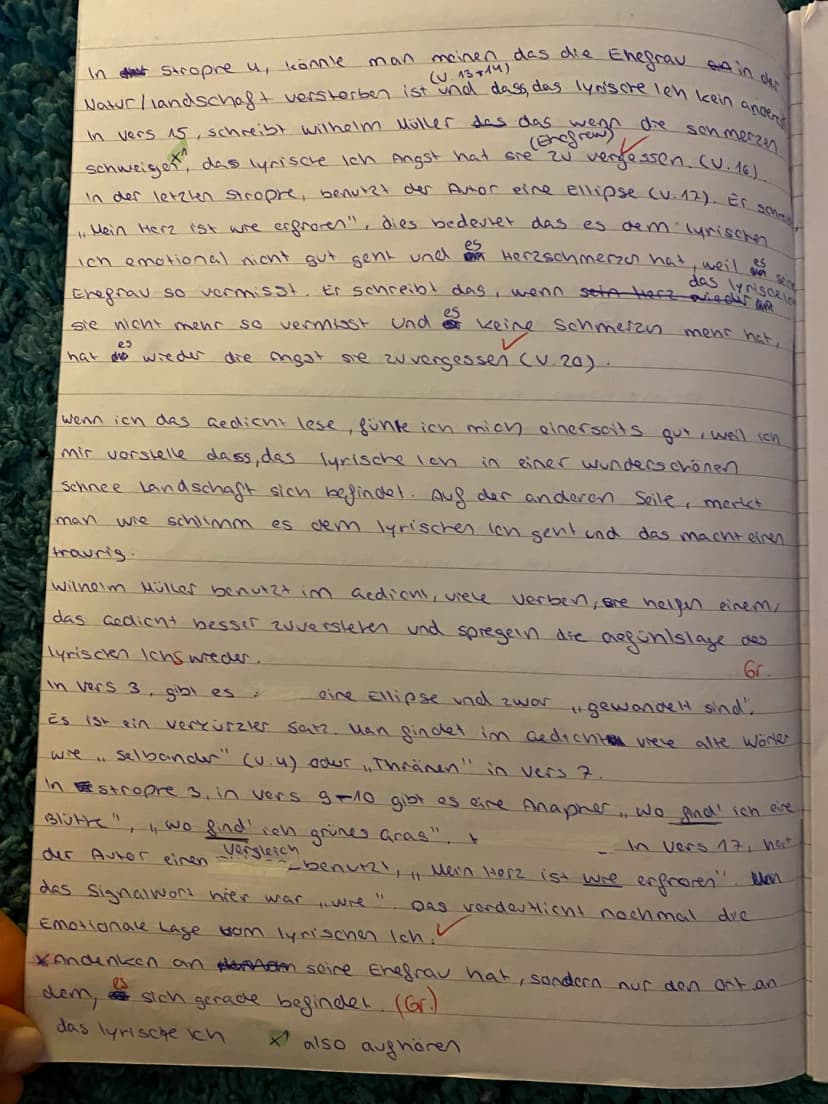 In Stropre 4, könnte man meinen das die Ehegrau in der
(V. 13+14)
Natur/landschaft verstorben ist und dass, das lyrische Ich kein anderes
In Vers 15, schreibt Wilhelm Müller das wenn die schmerzen
(Ehegrau)
schweigen x1, das lyrische Ich Angst hat sie zu vergessen. (V. 16)
In der letzten Stropre, benutzt der Autor eine Ellipse (V. 17). Er schreibt
„Mein Herz ist wie ergroren", dies bedeutet das es dem lyrischen
Ich emotional nicht gut geht und es Herzschmerzen hat, weil es seine
Ehegrau so vermisst. Er schreibt das, wenn das lyrische Ich
sie nicht mehr so vermisst und es keine Schmerzen mehr hat,
hat es wieder die Angst sie zuvergessen (V. 20).
Wenn ich das Gedicht lese, fühle ich mich einerseits gut, weil ich
mir vorstelle dass, das lyrische Ich in einer wunderschönen
Schnee Landschaft sich befindet. Auf der anderen Seite, merkt
man wie schlimm es dem lyrischen Ich geht und das macht einen
traurig.
Wilhelm Müller benutzt im Gedicht, viele Verben, sie helfen einem,
das Gedicht besser zuverstehen und spiegeln die Gefühlslage des
lyrischen Ichs wieder.
Gr.
In Vers 3, gibt es eine Ellipse und zwar „gewandelt sind".
Es ist ein verkürzter Satz. Man findet im Gedicht viele alte Wörter
wie „selbander" (V. 4) oder „Thränen" in Vers 7.
In Stropre 3, in Vers 9-10 gibt es eine Anapher „Wo find' ich eine
Blüthe", „wo find' ich grünes Gras". In Vers 17, hat
der Autor einen Vergleich benutzt, „Mein Herz ist wie ergroren".
das Signalwort hier war „wie". Das verdeutlicht nochmal die
Emotionale Lage vom lyrischen Ich.
x Andenken an seine Ehegrau hat, sondern nur den Ort an
dem, es sich gerade befindet. (Gr.)
das lyrische Ich x1 also aufhören